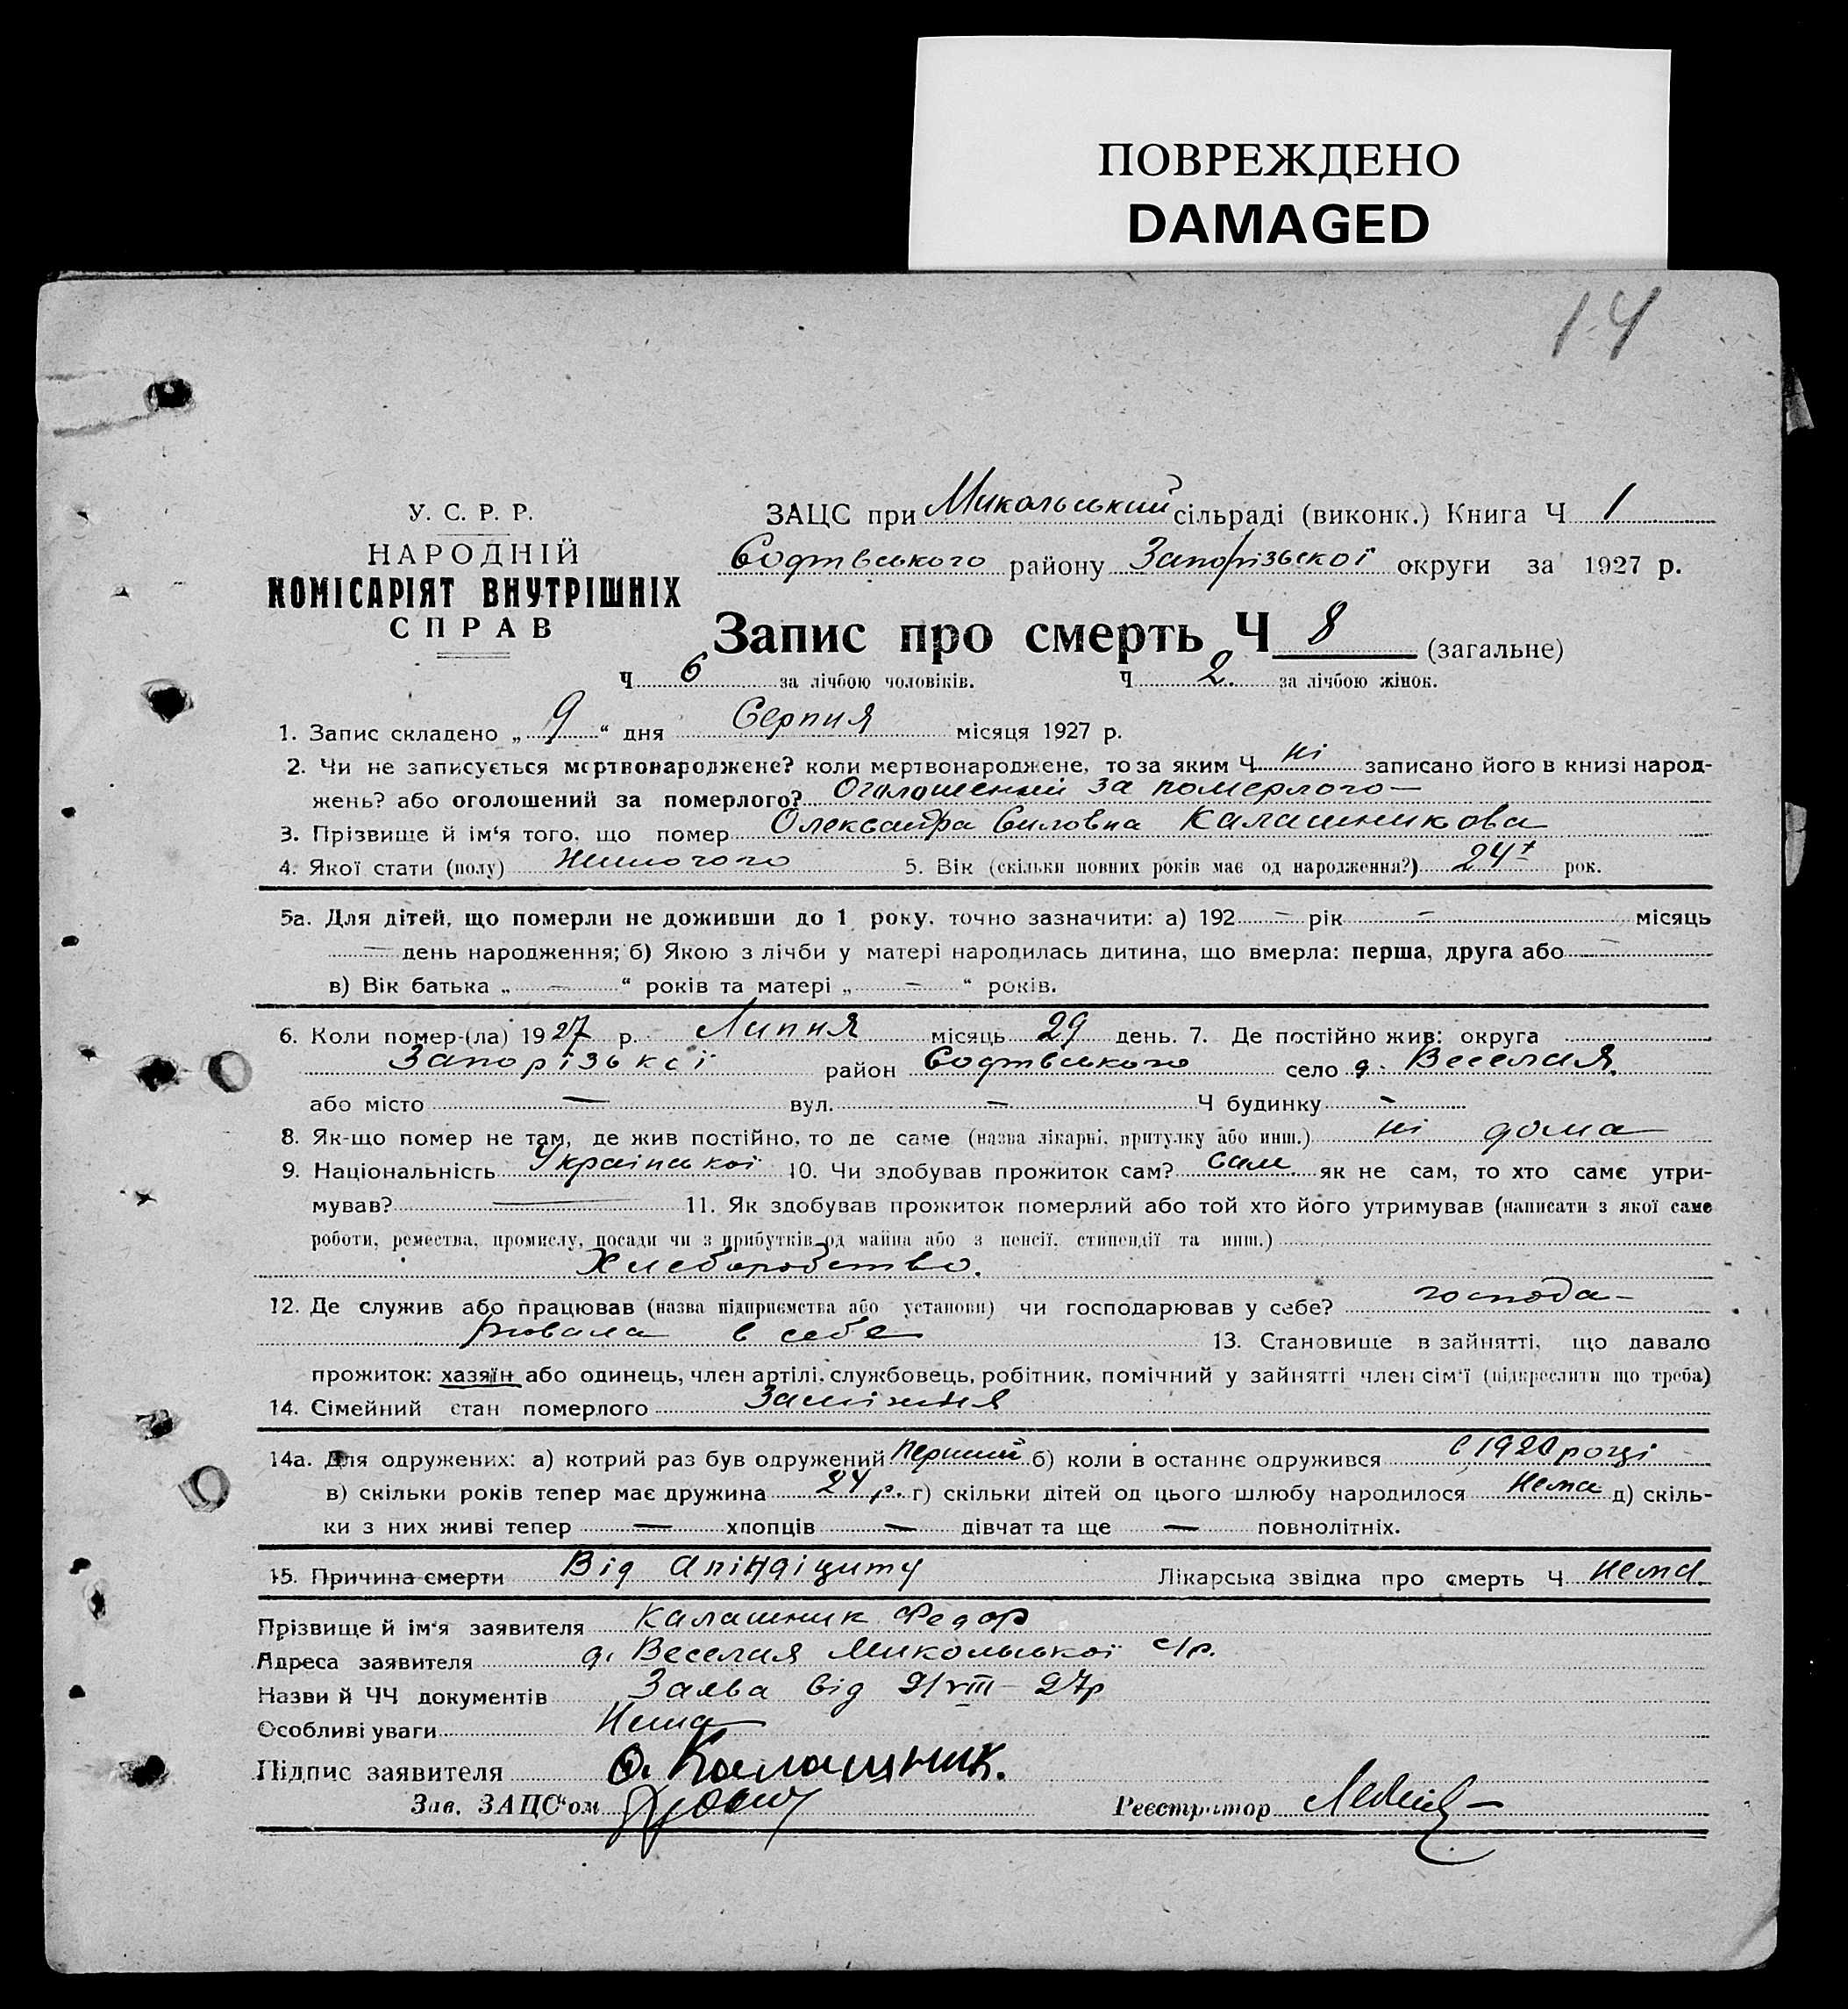 ПОВРЕЖДЕНО
DAMAGED
14
У. С. Р. Р.
НАРОДНІЙ
КОМІСАРІЯТ ВНУТРІШНІХ
СПРАВ
ЗАЦС при Микольський сільраді (виконк.) Книга Ч 1
Софтвського району Запорізьскої округи за 1927 р.
Запис про смерть Ч 8 (загальне)
Ч 6 за лічбою чоловіків. Ч 2. за лічбою жінок.
1. Запис складено „ 9 “ дня Серпня місяця 1927 р.
2. Чи не записується мертвонароджене? коли мертвонароджене, то за яким Ч ні записано його в книзі народ-
жень? або оголошений за померлого? Оголошений за померлого —
3. Прізвище й ім‘я того, що помер Олександра Силовна Калашникова
4. Якої стати (полу) 5. Вік (скільки повних років має од народження?) 24 рок.
5а. Для дітей, що померли не доживши до 1 року, точно зазначити: а) 192 — рік — місяць
— день народження; б) Якою з лічби у матері народилась дитина, що вмерла: перша, друга або —
в) Вік батька „ — “ років та матері „ — “ років.
6. Коли помер-(ла) 1927 р. Липня місяць 29 день. 7. Де постійно жив: округа
Запорізьксї район Софтвського село д. Веселая.
або місто — вул. — Ч будинку —
8. Як-що помер не там, де жив постійно, то де саме (назва лікарні, притулку або инш.) ні дома
9. Національність Української 10. Чи здобував прожиток сам? Сам. як не сам, то хто саме утри-
мував? — 11. Як здобував прожиток померлий або той хто його утримував (написати з якої саме
роботи, ремества, промислу, посади чи з прибутків од майна або з пенсії, стипендії та инш.)
Хлеборобство.
12. Де служив або працював (назва підприємства або установи) чи господарював у себе? господа-
рювала в себе 13. Становище в зайнятті, що давало
прожиток: хазяїн або одинець, член артілі, службовець, робітник, помічний у зайнятті член сім‘ї (підкреслити що треба)
14. Сімейний стан померлого Заміжня
14а. Для одружених: а) котрий раз був одружений Перший б) коли в останнє одружився в 1920 році
в) скільки років тепер має дружина 24 р. г) скільки дітей од цього шлюбу народилося Нема д) скіль-
ки з них живі тепер — хлопців — дівчат та ще — повнолітніх.
15. Причина смерти Від апіндіциту Лікарська звідка про смерть Ч Нема.
Прізвище й ім‘я заявителя Калашник Федор
Адреса заявителя д. Веселая Микольської с/р.
Назви й ЧЧ документів Заява від 9/VIII - 27р
Особливі уваги Нема
Підпис заявителя Ф. Калашник.
Зав. ЗАЦС‘ом
Реєстратор